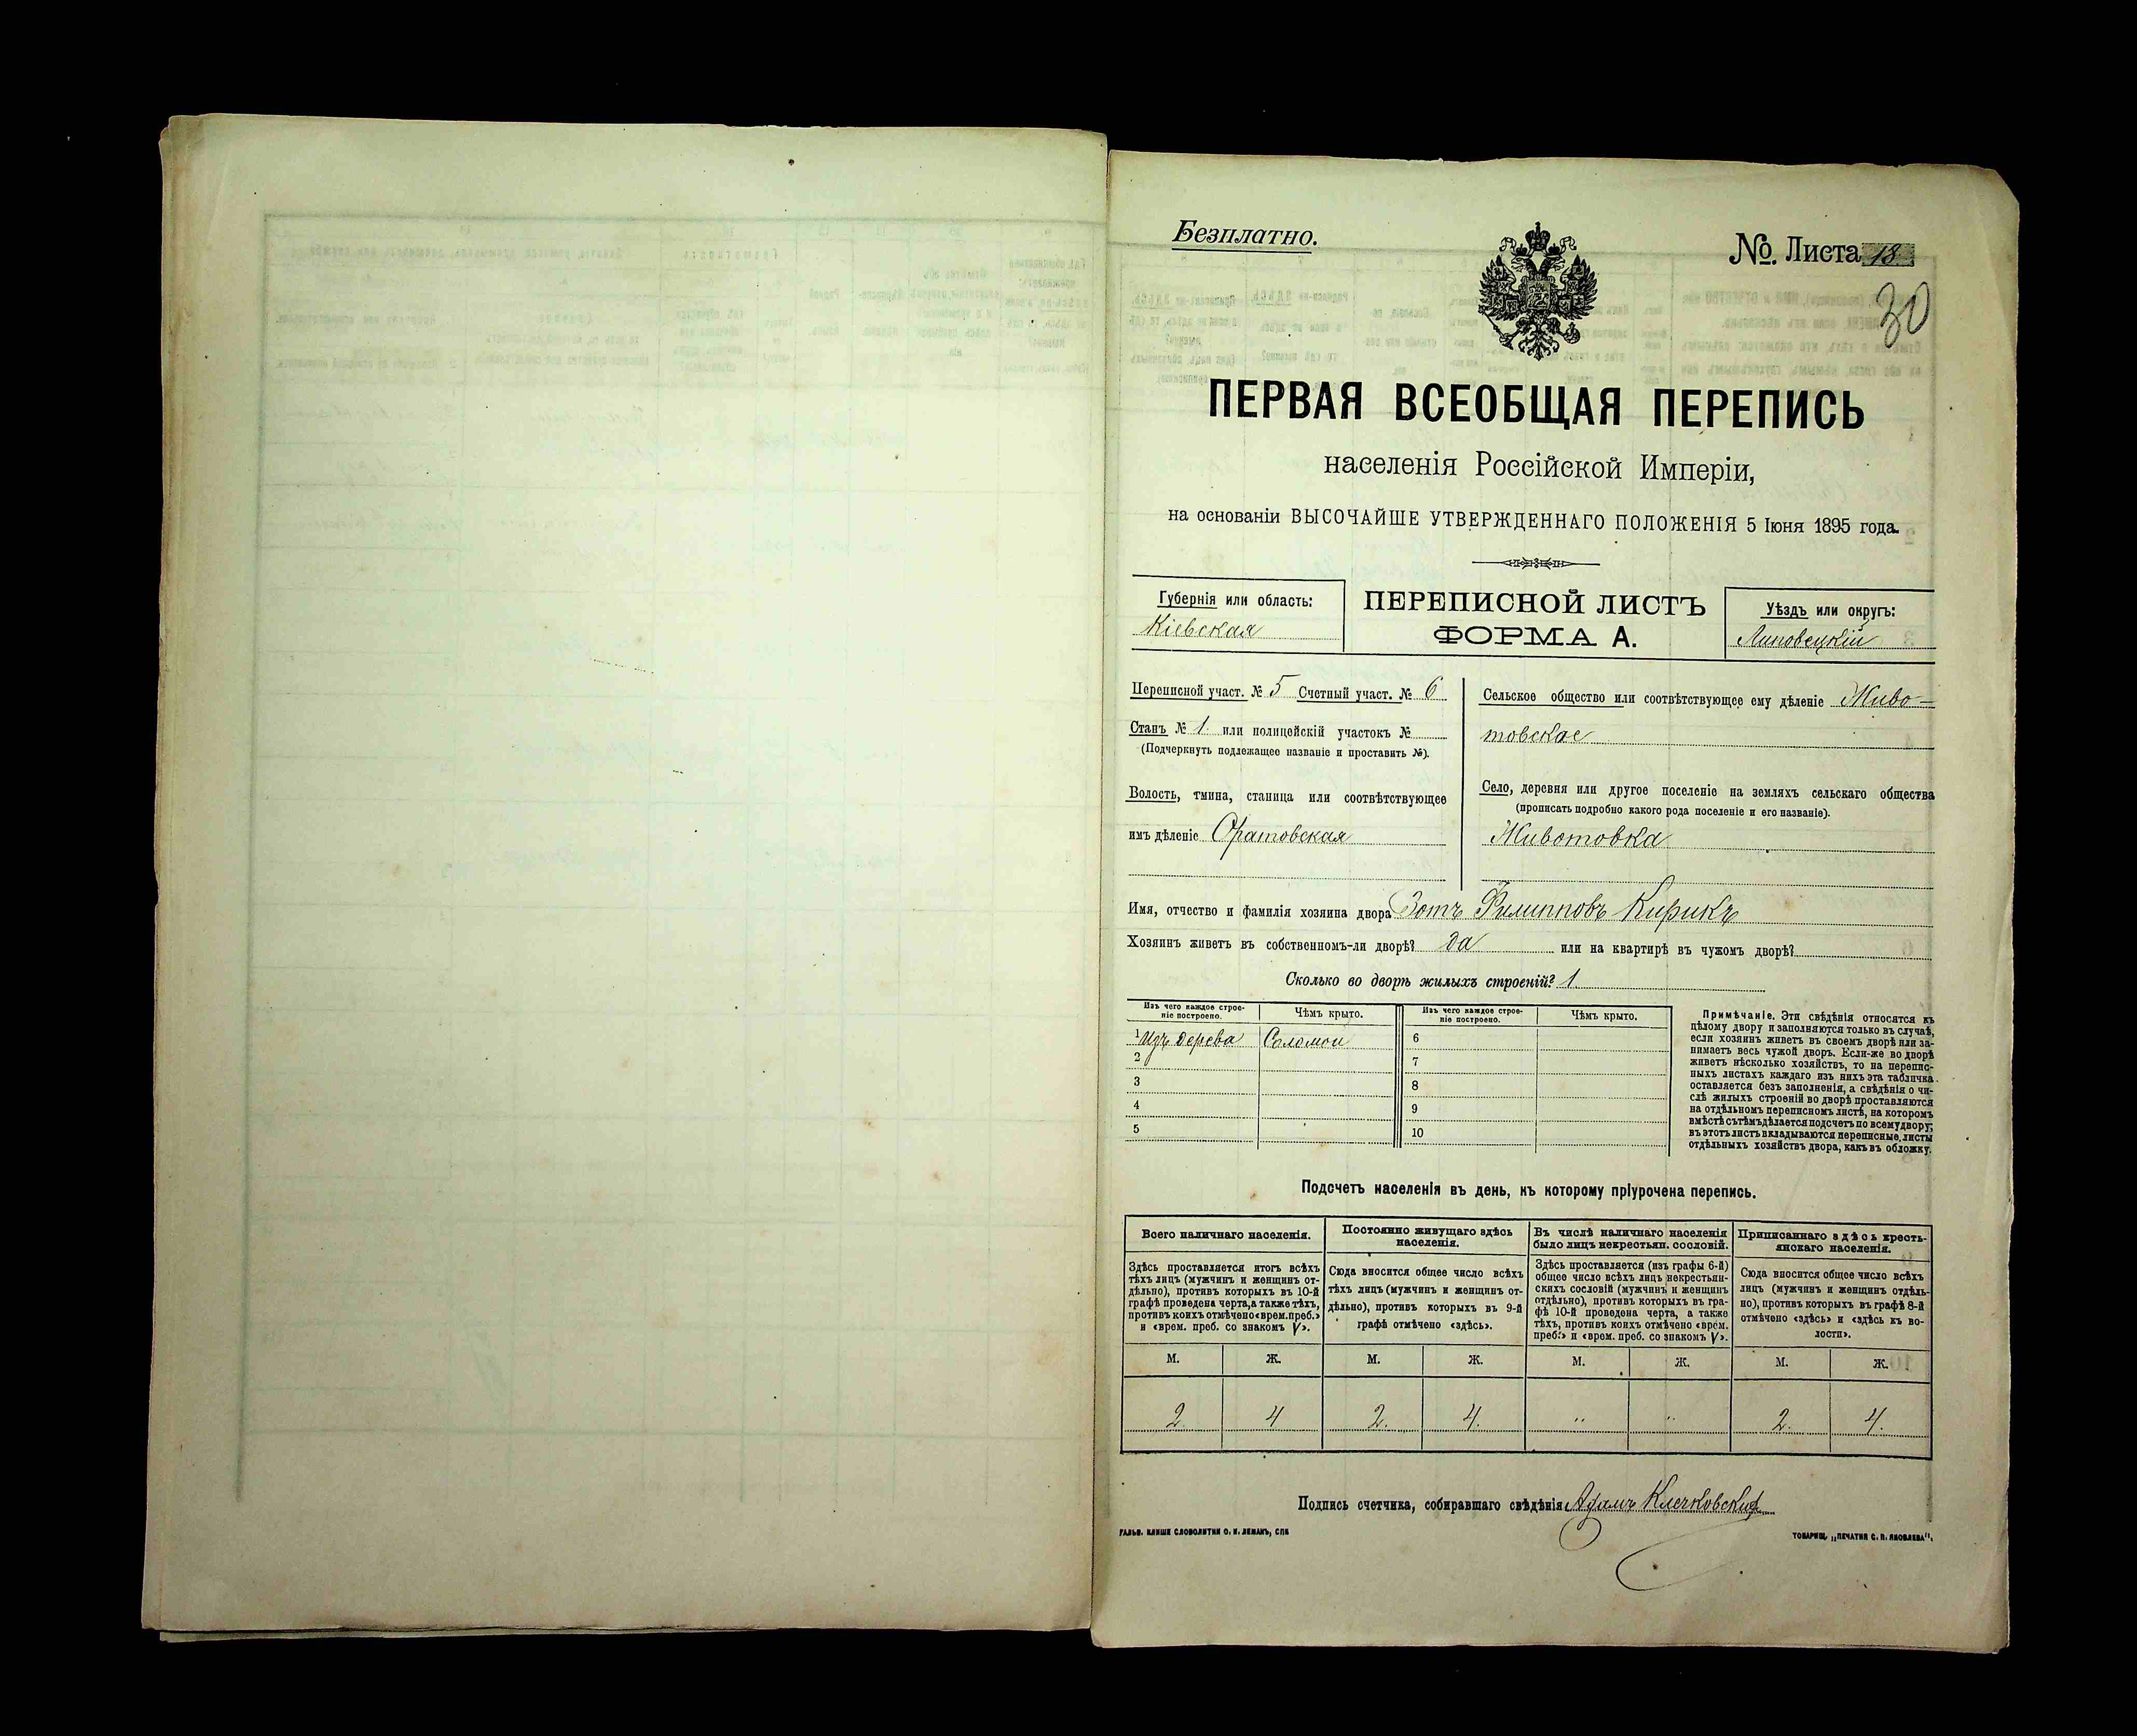 Безплатно.
№. Листа 18
30
ПЕРВАЯ ВСЕОБЩАЯ ПЕРЕПИСЬ
населенія Россійской Имперіи,
на основаніи ВЫСОЧАЙШЕ УТВЕРЖДЕННАГО ПОЛОЖЕНІЯ 5 Іюня 1895 года.
Губернія или область:
Кіевская
ПЕРЕПИСНОЙ ЛИСТЪ
ФОРМА А.
Уѣздъ или округъ:
Липовецкій
Переписной участ. № 5 Счетный участ. № 6
Станъ № 1. или полицейскій участокъ №
(Подчеркнуть подлежащее названіе и проставить №).
Волость, гмина, станица или соотвѣтствующее
имъ дѣленіе Оратовская
Сельское общество или соотвѣтствующее ему дѣленіе Живо-
товское
Село, деревня или другое поселеніе на земляхъ сельскаго общества
(прописать подробно какого рода поселеніе и его названіе).
Животовка
Имя, отчество и фамилія хозяина двора Зотъ Филипповъ Кирикъ
Хозяинъ живетъ въ собственномъ-ли дворѣ? да или на квартирѣ въ чужомъ дворѣ?
Сколько во дворѣ жилыхъ строеній? 1
Изъ чего каждое строе-
ніе построено.
Чѣмъ крыто.
1 Изъ дерева Соломой
2
3
4
5
Изъ чего каждое строе-
ніе построено.
Чѣмъ крыто.
6
7
8
9
10
Примѣчаніе. Эти свѣдѣнія относятся къ
цѣлому двору и заполняются только въ случаѣ,
если хозяинъ живетъ въ своемъ дворѣ или за-
нимаетъ весь чужой дворъ. Если-же во дворѣ
живетъ нѣсколько хозяйствъ, то на перепис-
ныхъ листахъ каждаго изъ нихъ эта табличка
оставляется безъ заполненія, а свѣдѣнія о чи-
слѣ жилыхъ строеній во дворѣ проставляются
на отдѣльномъ переписномъ листѣ, на которомъ
вмѣстѣ съ тѣмъ дѣлается подсчетъ по всему двору;
въ этотъ листъ вкладываются переписные листы
отдѣльныхъ хозяйствъ двора, какъ въ обложку.
Подсчетъ населенія въ день, къ которому пріурочена перепись.
Всего наличнаго населенія.
Здѣсь проставляется итогъ всѣхъ
тѣхъ лицъ (мужчинъ и женщинъ от-
дѣльно), противъ которыхъ въ 10-й
графѣ проведена черта, а также тѣхъ,
противъ коихъ отмѣчено «врем. преб.»
и «врем. преб. со знакомъ V».
М. Ж.
2 4
Постоянно живущаго здѣсь
населенія.
Сюда вносится общее число всѣхъ
тѣхъ лицъ (мужчинъ и женщинъ от-
дѣльно), противъ которыхъ въ 9-й
графѣ отмѣчено «здѣсь».
М. Ж.
2. 4.
Въ числѣ наличнаго населенія
было лицъ некрестьян. сословій.
Здѣсь проставляется (изъ графы 6-й)
общее число всѣхъ лицъ некрестьян-
скихъ сословій (мужчинъ и женщинъ
отдѣльно), противъ которыхъ въ гра-
фѣ 10-й проведена черта, а также
тѣхъ, противъ коихъ отмѣчено «врем.
преб.» и «врем. преб. со знакомъ V».
М. Ж.
" "
Приписаннаго здѣсь кресть-
янскаго населенія.
Сюда вносится общее число всѣхъ
лицъ (мужчинъ и женщинъ отдѣль-
но), противъ которыхъ въ графѣ 8-й
отмѣчено «здѣсь» и «здѣсь къ во-
лости».
М. Ж.
2. 4.
Подпись счетчика, собиравшаго свѣдѣнія Адамъ Клечковскій
ГАЛЬВ. КЛИШЕ СЛОВОЛИТНИ О. И. ЛЕМАНЪ, СПБ
ТОВАРИЩ. „ПЕЧАТНЯ С. П. ЯКОВЛЕВА".